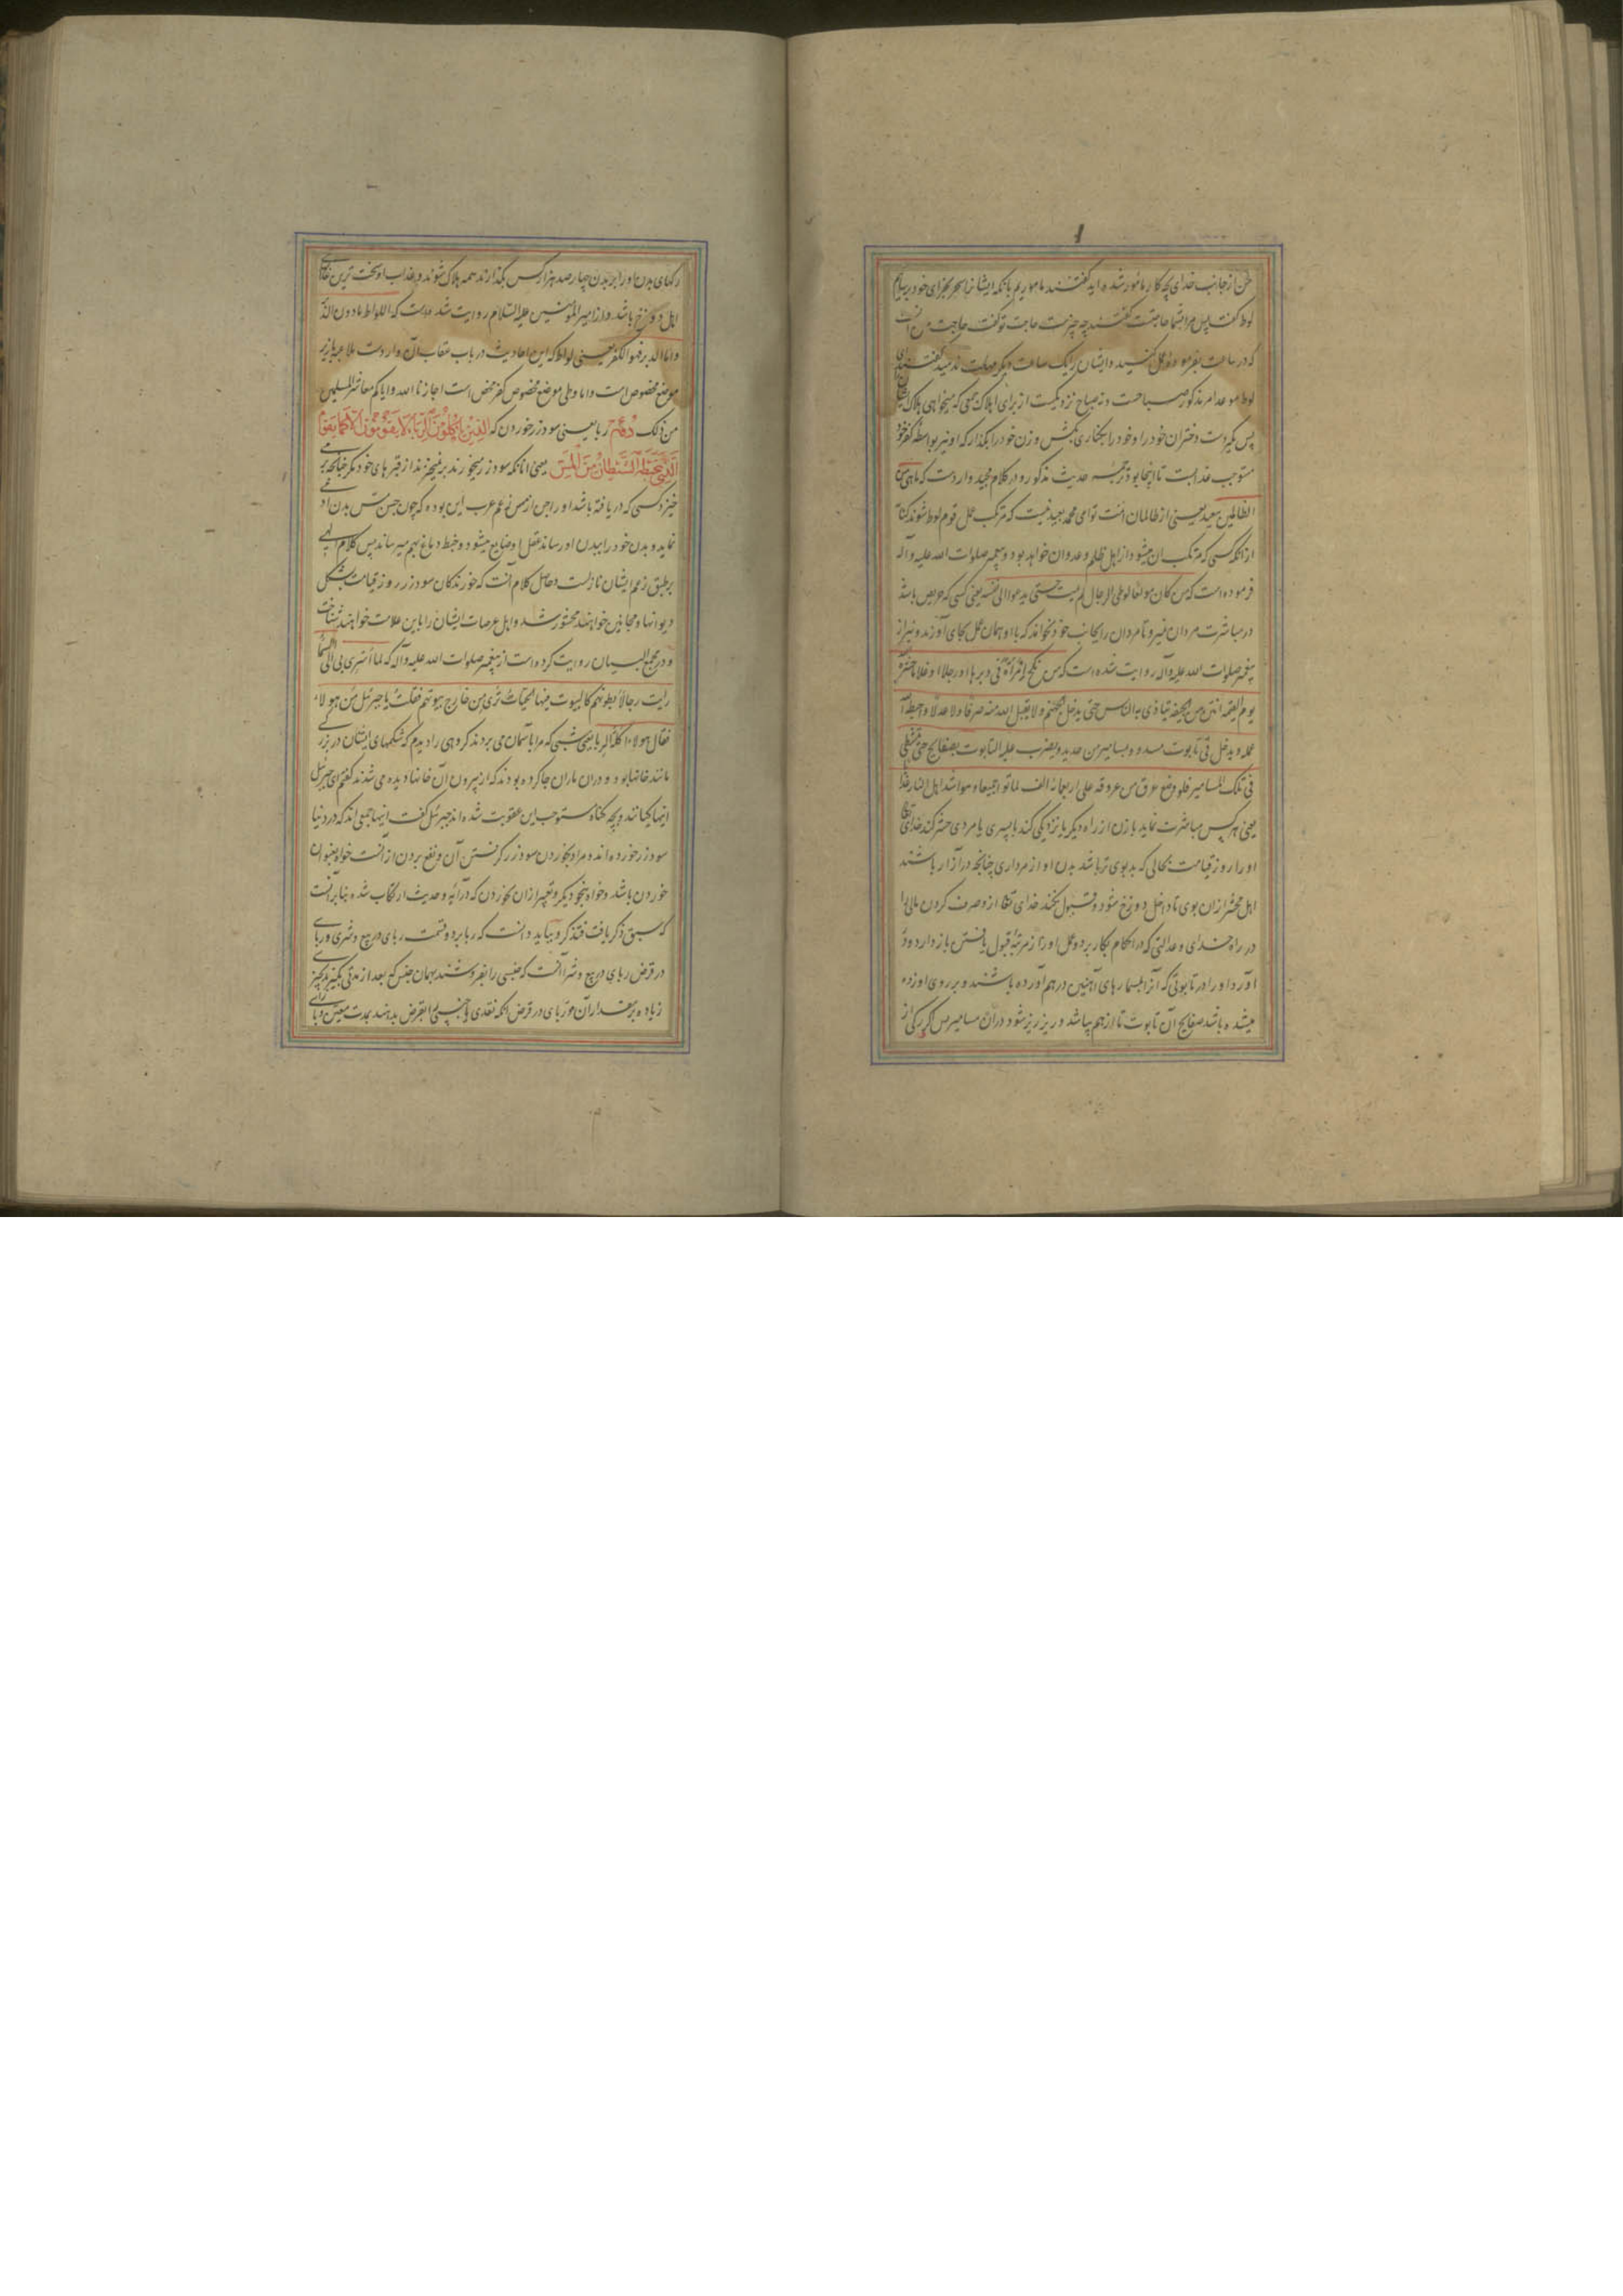 من از جانب خدای بچه کار مامور شده اید گفتند ماموریم بانکه ایشانرا سحر بجزای خود برسانیم
لوط گفت پس مرا بشما حاجتست گفتند چه چیزست حاجت تو گفت حاجت من آنست
که در ساعت بفرموده عمل کنید و ایشان را یک ساعت دیگر مهلت ندهید گفتند ای
لوط موعد امر مذکور صباحست و نه صباح نزدیکست از برای اهلاک جمعی که میخواهی هلاک ایشانرا
پس بگیر دست دختران خود را و خود را بکناری کش و زن خود را بگذار که او نیز بواسطه کفر خود
مستوجب عذابست تا اینجا بود ترجمه حدیث مذکور و در کلام مجید واردست که ما هی من
الظالمین ببعید یعنی از ظالمان امت تو ای محمد بعید نیست که مرتکب عمل قوم لوط شوند
از آنکه کسی که مرتکب آن میشود از اهل ظلم و عدوان خواهد بود و پیغمبر صلوات الله علیه و آله
فرموده است که من کان مولعا لوطی الرجال لم یمت حتی یدعوا الی نفسه یعنی کسی که حریص باشد
در مباشرت مردان نمیرد تا مردان را بجانب خود نخواند که با او همان عمل بجای آورند و نیز از
پیغمبر صلوات الله علیه و آله روایت شده است که من نکح امرأة فی دبرها او رجلا او غلاما حشره
یوم القیمه انتن من الجیفه یتاذی به الناس حتی یدخل جهنم و لا یقبل الله منه صرفا و لا عدلا و احبط الله
عمله و یدخل فی تابوت مسدود بمسامیر من حدید و یضرب علیه التابوت بصفایح حتی
فی تلک المسامیر فلو وضع عرق من عروقه علی اربعمائه الف لماتوا جمیعا و هو اشد اهل النار عذابا
یعنی هر کس مباشرت نماید با زن از راه دیگر یا نزدیکی کند با پسری یا مردی حشر کند خدای تعالی
او را روز قیامت بحالی که بدبوی تر باشد بدن او از مرداری چنانچه در آزار باشند
اهل محشر از آن بوی تا داخل دوزخ شود و قبول نکند خدای تعالی از و صرف کردن مالی را
در راه خدای و عدالتی که در احکام بکار برد و عمل او را از مرتبه قبول یافتن باز دارد و در
آورد او را در تابوتی که آنرا بمسمارهای آهنین در هم آورده باشند و بر روی او زده
میشده باشد صفایح آن تابوت تا از هم بپاشد و ریز ریز شود در آن مسامیر پس اگر رگی از
رگهای بدن او را بر بدن چهار صد هزار کس بگذارند همه هلاک شوند و عذاب او سخت ترین عذاب
اهل دوزخ باشد و از امیر المومنین علیه السلام روایت شده است که اللواط ما دون الدبر
و اما الدبر فهو الکفر یعنی لواط که این احادیث در باب عقاب آن واردست ملاعبه با زیر
موضع مخصوص است و اما وطی موضع مخصوص کفر محض است اجازنا الله و ایاکم معاشر المسلمین
من ذلک دهم ربا یعنی سود زر خوردن که الذین یاکلون الربا لا یقومون الا کما یقوم
الذی یتخبطه الشیطان من المس یعنی آنانکه سود زر میخورند بر نمیخیزند از قبرهای خود مگر چنانچه بر می
خیزد کسی که دریافته باشد او را جن از مس زعم عرب این بوده که چون جن مس بدن آدمی
نماید و بدن خود را ببدن او رساند عقل او ضایع میشود و خبط دماغ بهم میرساند پس کلام الهی
بر طبق زعم ایشان نازلست و حاصل کلام آنست که خورندگان سود زر روز قیامت بشکل
دیوانها و مجانین خواهند محشور شد و اهل عرصات ایشان را باین علامت خواهند شناخت
و در مجمع البیان روایت کرده است از پیغمبر صلوات الله علیه و آله که لما اسری بی الی السماء
رایت رجالا بطونهم کالبیوت فیها الحیات تری من خارج بطونهم فقلت یا جبرئیل من هولاء
فقال هولاء اکلة الربا یعنی شبی که مرا بآسمان می بردند گروهی را دیدم که شکمهای ایشان در بزرگی
مانند خانها بود و در آن ماران جا کرده بودند که از بیرون آن خانها دیده می شدند گفتم ای جبرئیل
اینها کیانند و بچه گناه مستوجب این عقوبت شده اند جبرئیل گفت اینها جمعی اند که در دنیا
سود زر خورده اند و مراد بخوردن سود زر گرفتن آن و نفع بردن از آنست خواه بعنوان
خوردن باشد و خواه بنحو دیگر و تعبیر از آن بخوردن که در آیه و حدیث ارتکاب شده بنابر آنست
که سبق ذکر یافت فتذکر و بباید دانست که ربا بر دو قسمت ربای در بیع و شری و ربای
در قرض ربای در بیع و شرا آنست که جنسی را بفروشند بهمان جنس که بعد از مدتی بگیرند بچیزی
زیاده بر مقدار آن و ربای در قرض آنکه نقدی یا جنسی را بقرض بدهند بمدت معین و برای